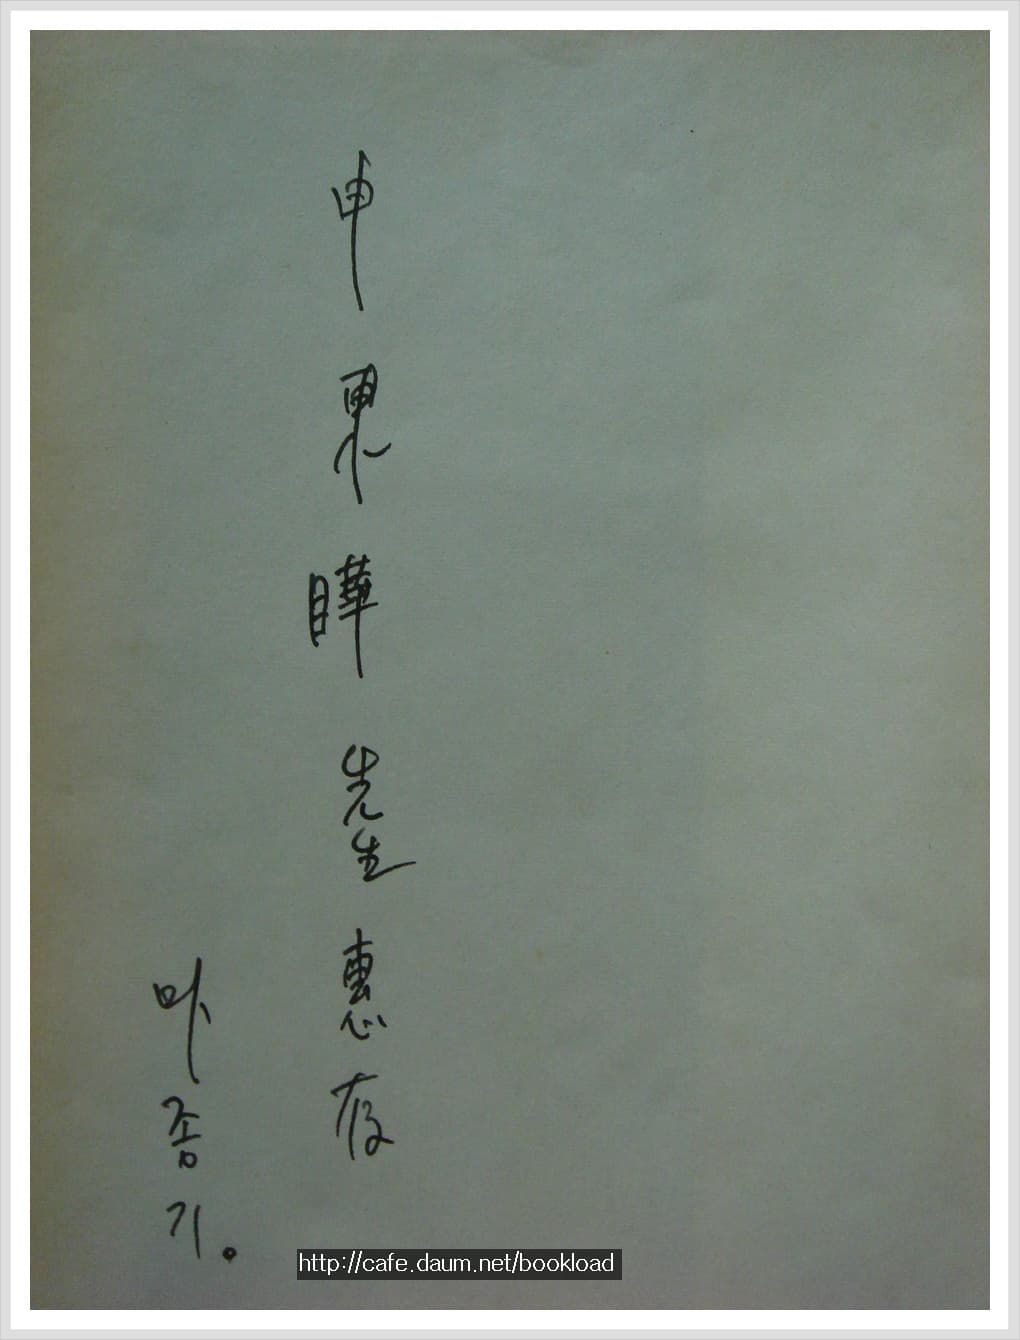 申東曄 先生 惠存
마종기.
http://cafe.daum.net/bookload